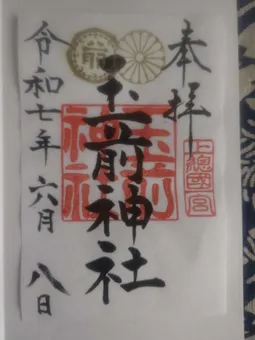 奉拝
上總國一宮
玉前神社
玉前神社
令和七年六月八日